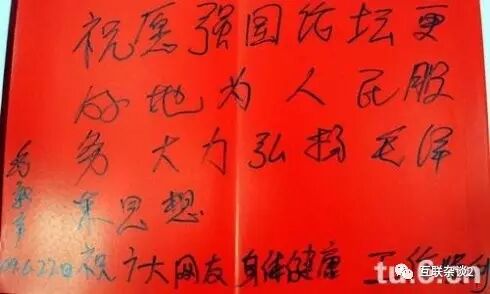 祝愿强国论坛更
好地为人民服
务大力弘扬毛泽
东思想
祝广大网友身体健康 工作顺利
09.6.22日
tu.6.cn
互联杂谈2